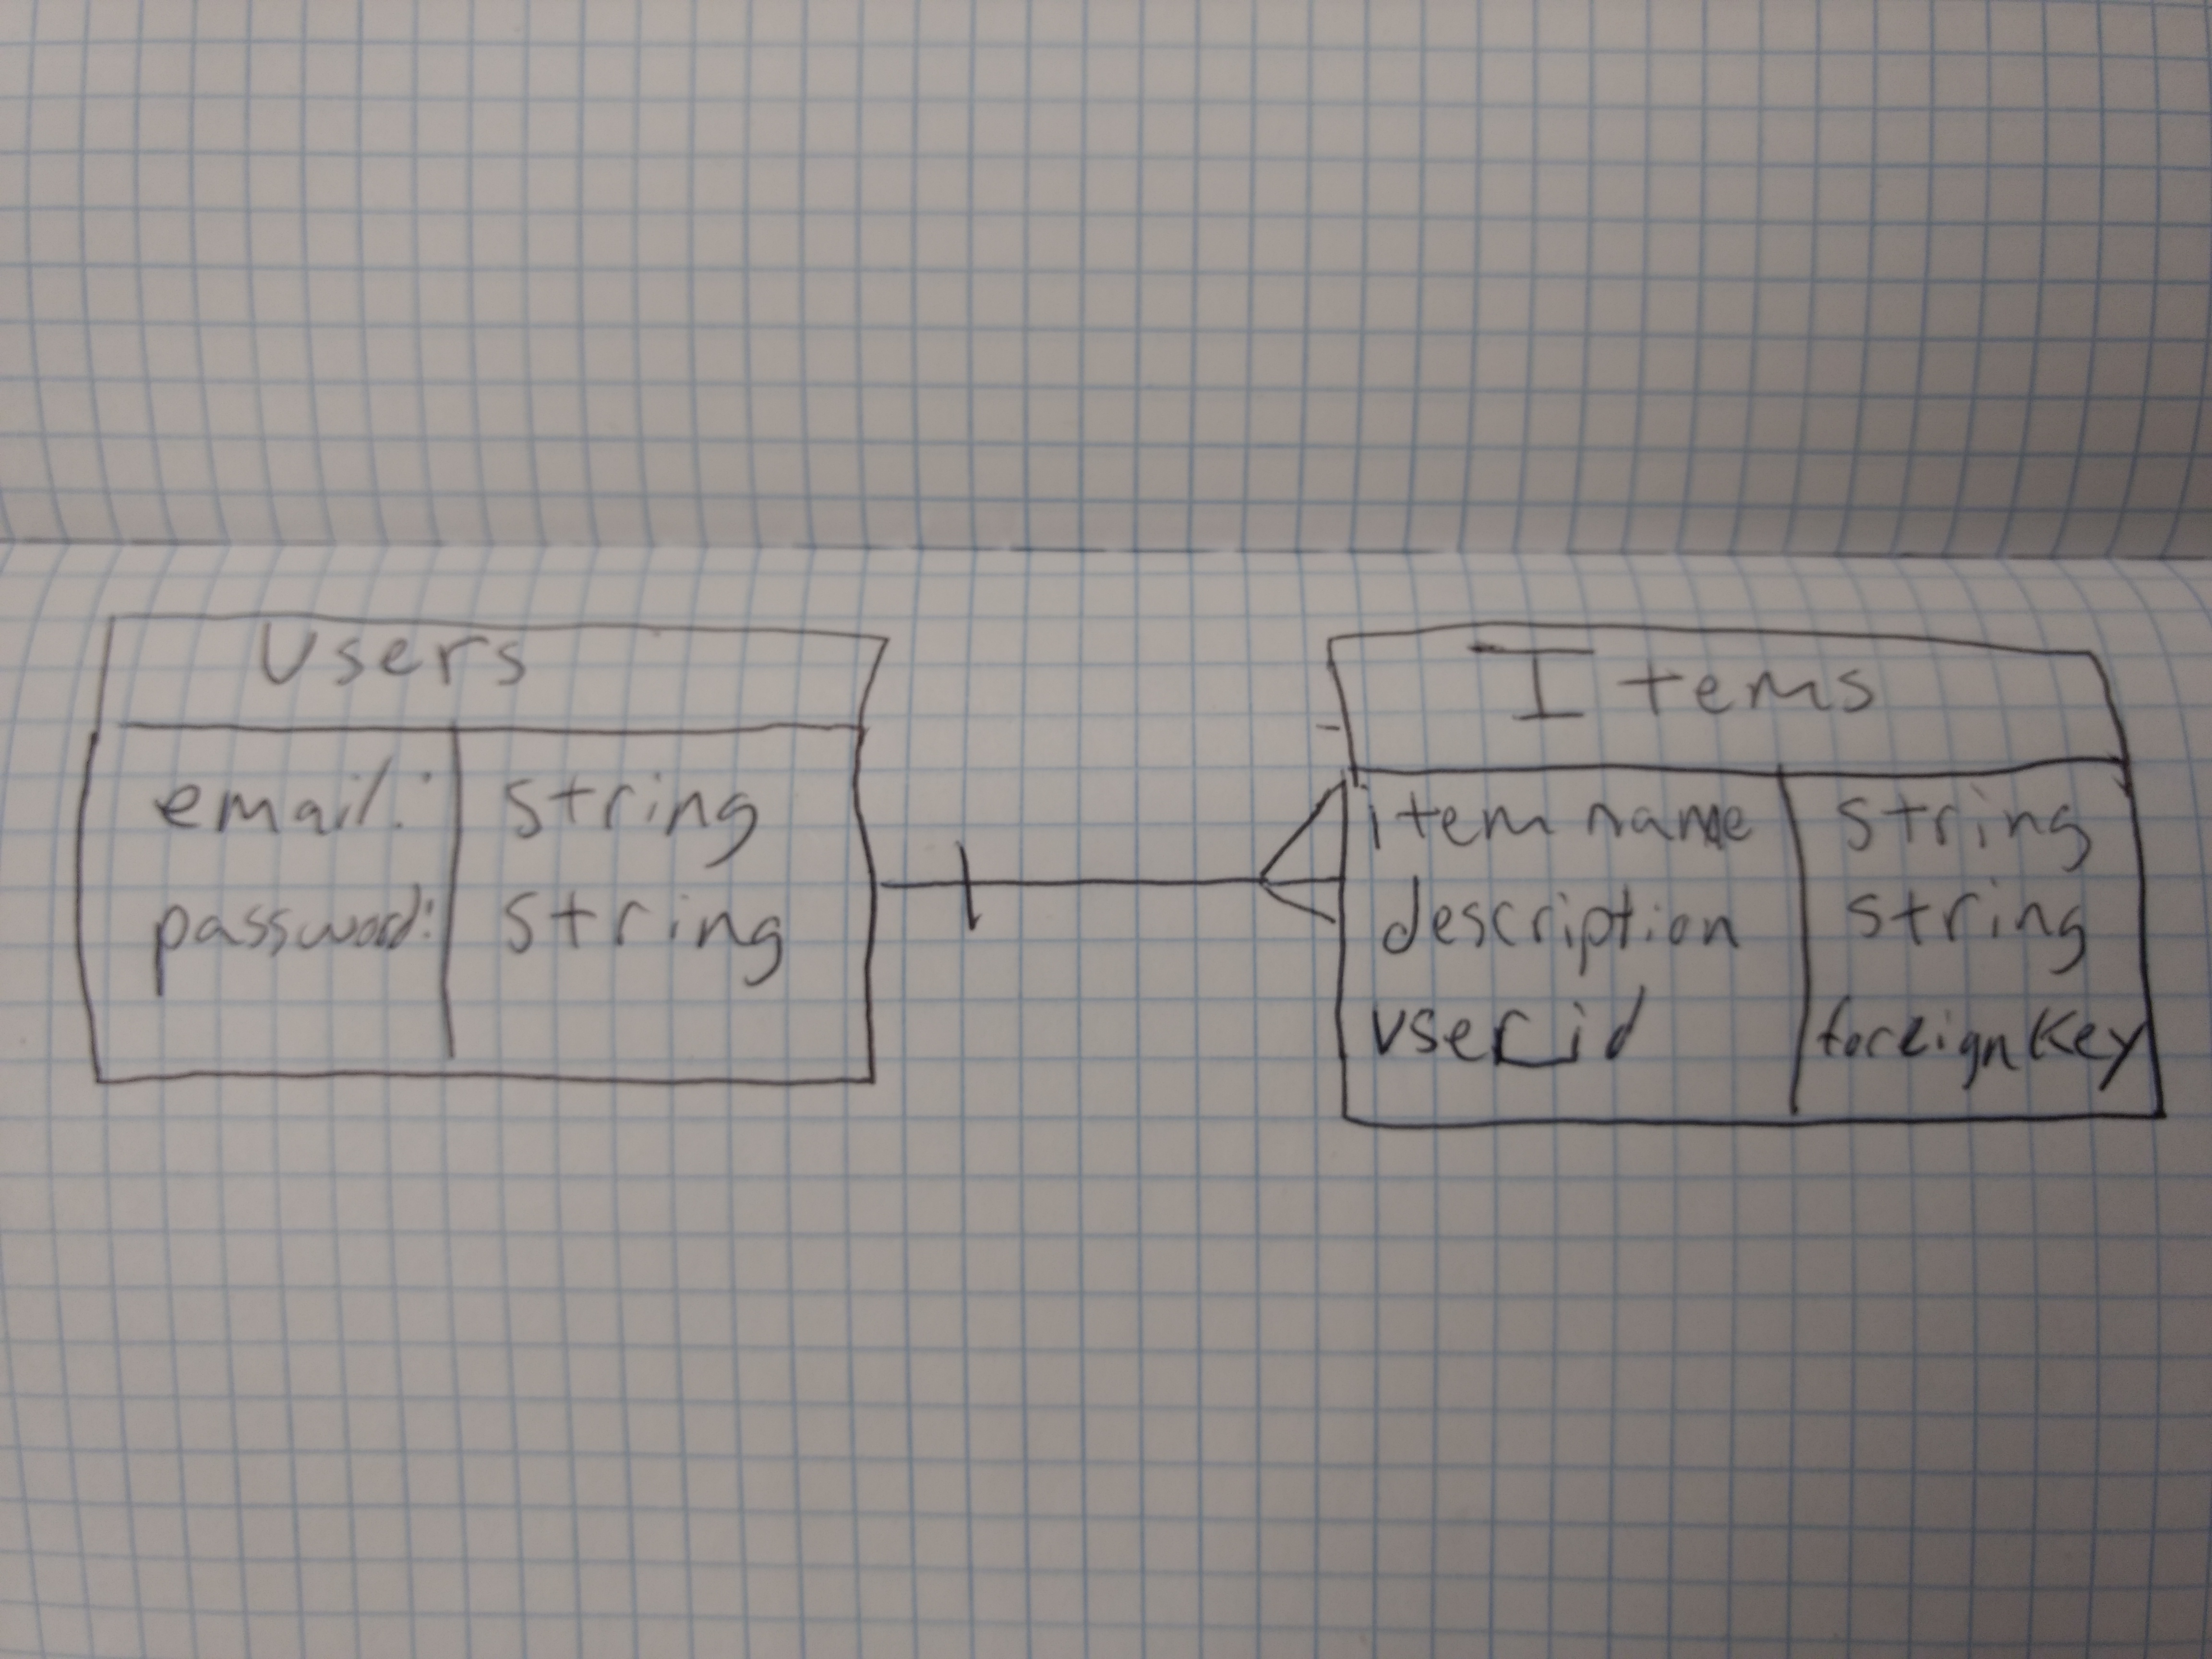 Users
email: string
password: string
Items
item name string
description string
user_id foreign key